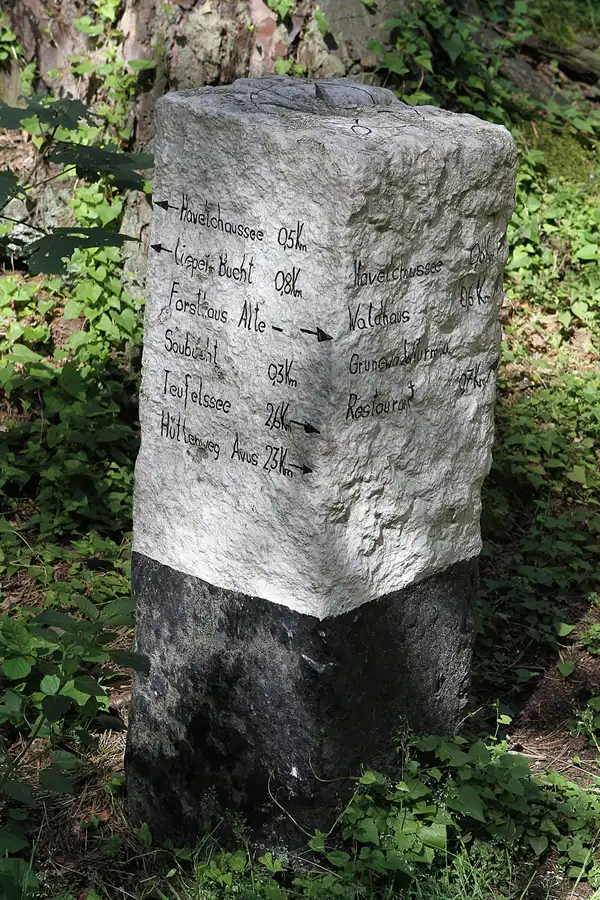 ← Havelchaussee 0,5Km
← Lieper Bucht 0,8Km
Forsthaus Alte →
Saubucht 0,3Km
Teufelssee 2,6Km →
Hüttenweg Avus 2,3Km →
Havelchaussee
Waldhaus 0,6Km
Grunewaldturm u.
Restaurant 0,7Km